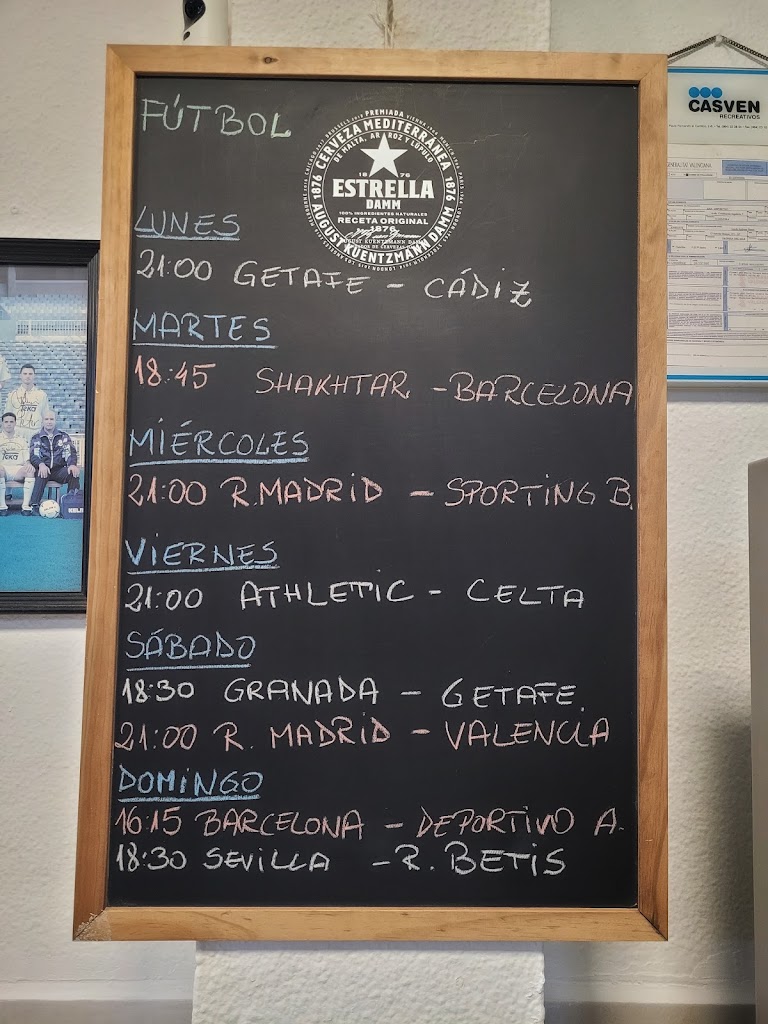 FÚTBOL
PREMIADA
CERVEZA MEDITERRÁNEA
DE MALTA, ARROZ Y LÚPULO
1876
1876
1876
ESTRELLA
DAMM
100% INGREDIENTES NATURALES
RECETA ORIGINAL
1876
AUGUST KUENTZMANN DAMM
LUNES
21:00 GETAFE - CÁDIZ
MARTES
18:45 SHAKHTAR - BARCELONA
MIÉRCOLES
21:00 R.MADRID - SPORTING B.
VIERNES
21:00 ATHLETIC - CELTA
SÁBADO
18:30 GRANADA - GETAFE.
21:00 R. MADRID - VALENCIA
DOMINGO
16:15 BARCELONA - DEPORTIVO A.
18:30 SEVILLA - R. BETIS
CASVEN
RECREATIVOS
GENERALITAT VALENCIANA
TEKA
TEKA